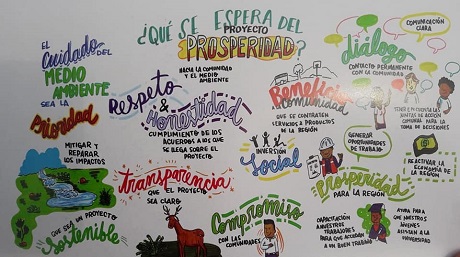 ¿QUÉ SE ESPERA DEL
PROYECTO
PROSPERIDAD?
HACIA LA COMUNIDAD
Y EL MEDIO AMBIENTE
EL
Cuidado DEL
MEDIO
AMBIENTE
SEA LA
Prioridad
MITIGAR Y
REPARAR
LOS IMPACTOS
QUE SEA UN PROYECTO
Sostenible
Respeto
&
Honestidad
CUMPLIMIENTO DE LOS
ACUERDOS A LOS QUE
SE LLEGA SOBRE EL
PROYECTO
transparencia
QUE EL PROYECTO
SEA CLARO
Beneficio
Comunidad
QUE SE CONTRATEN
SERVICIOS & PRODUCTOS
DE LA REGIÓN
INVERSIÓN
Social
Compromiso
CON LAS
COMUNIDADES
diálogo
CONTACTO PERMANENTE
CON LA COMUNIDAD
COMUNICACIÓN
CLARA
JUNTAS DE ACCIÓN
COMUNAL PARA LA
TOMA DE DECISIONES
GENERAR
OPORTUNIDADES
DE TRABAJO
REACTIVAR LA
ECONOMÍA DE
LA REGIÓN
Prosperidad
PARA LA REGIÓN
CAPACITACIÓN
A NUESTROS
TRABAJADORES
PARA QUE ACCEDAN
A UN BUEN TRABAJO
AYUDA PARA
QUE NUESTROS
JÓVENES
A LA UNIVERSIDAD